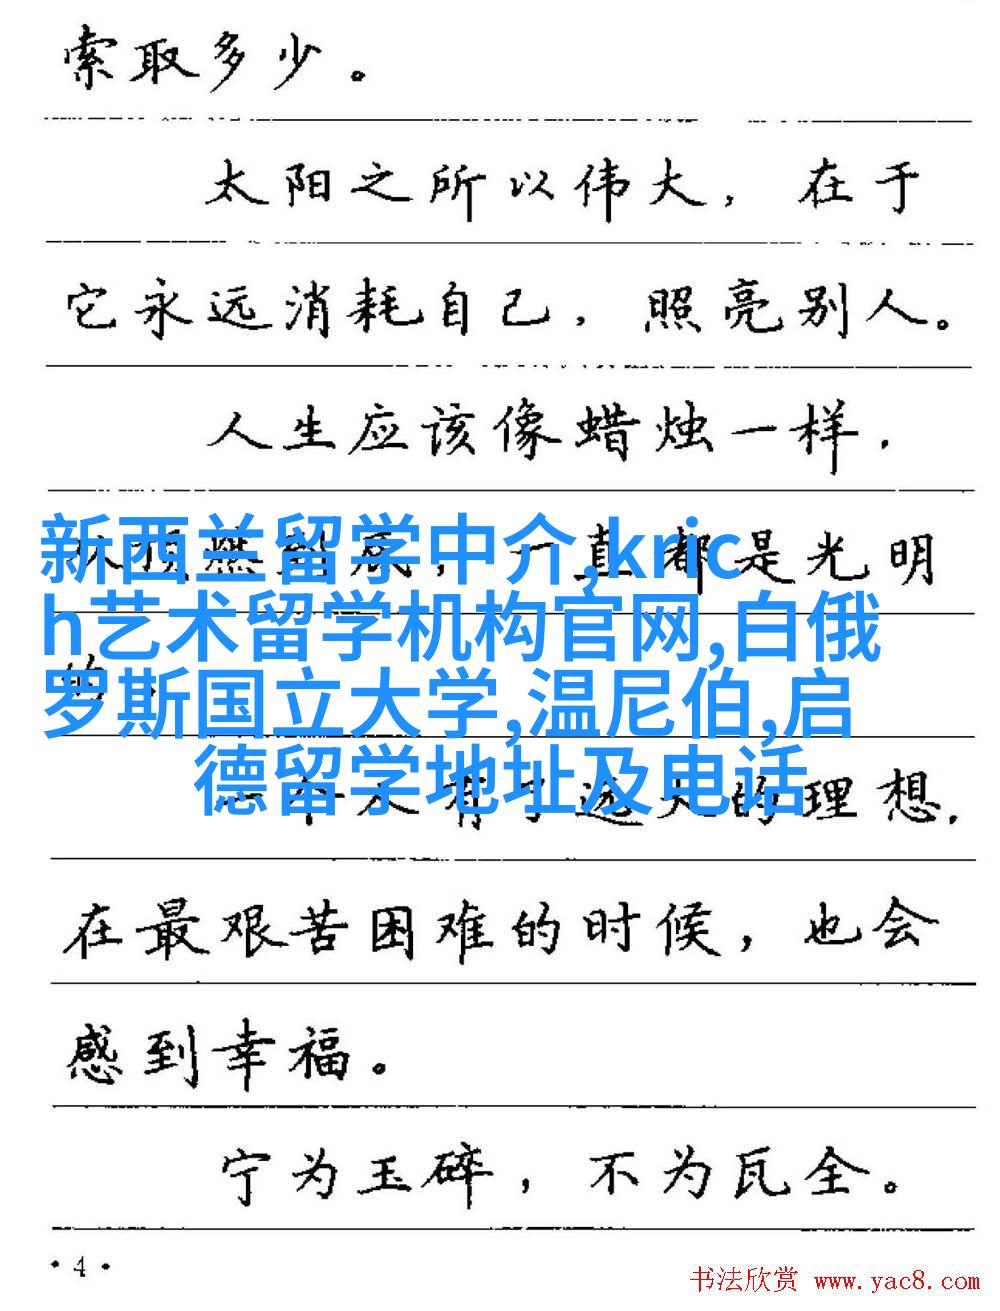 索取多少。
太阳之所以伟大，在于
它永远消耗自己，照亮别人。
人生应该像蜡烛一样，
从顶燃到底，一直都是光明
的。
新西兰留学中介,kric
h艺术留学机构官网,白俄
罗斯国立大学,温尼伯,启
德留学地址及电话
一个人有了远大的理想，
在最艰苦困难的时候，也会
感到幸福。
宁为玉碎，不为瓦全。
·4·
书法欣赏 www.yac8.com